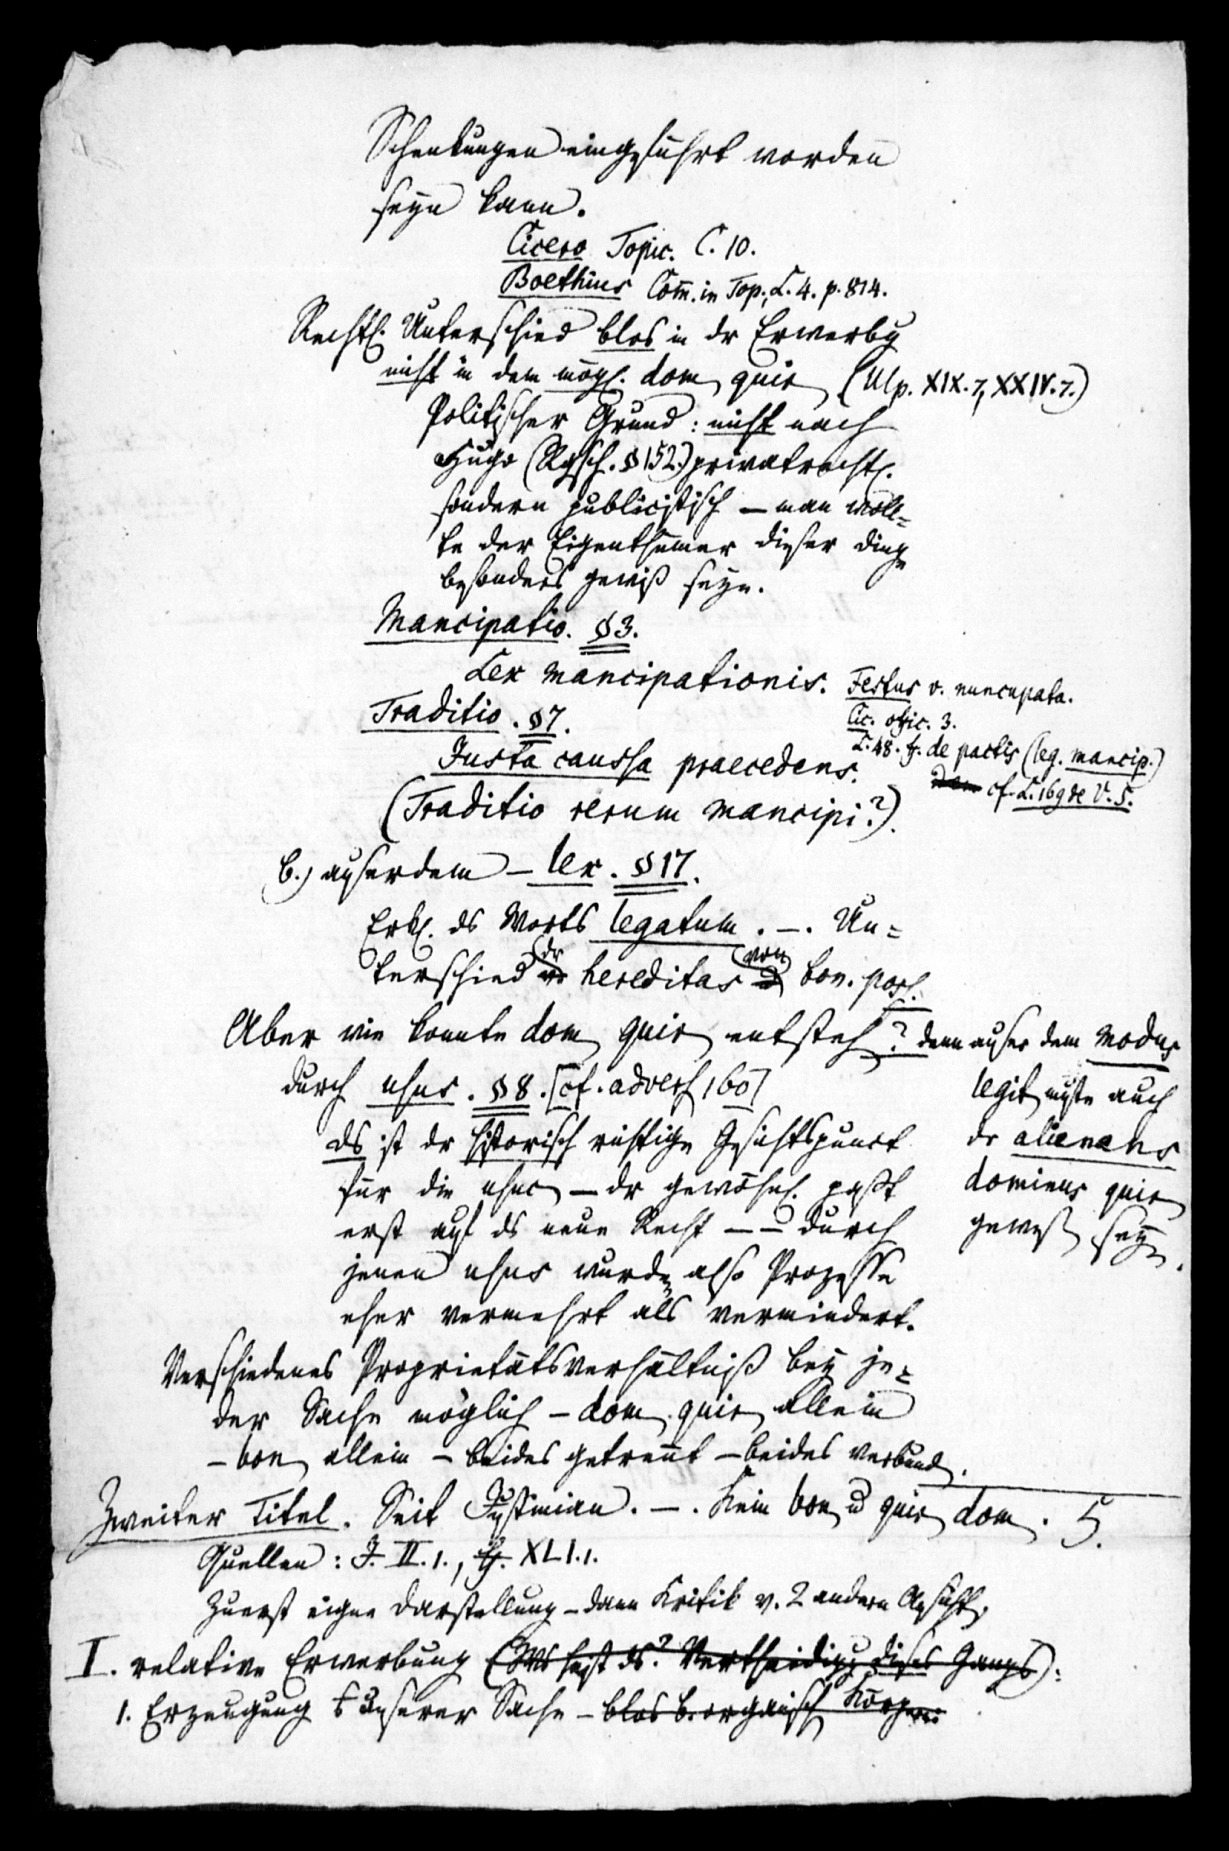 Schenkungen eingeführt worden
seyn kann.
Cicero Topic. C. 10.
Boethius Com̄. in Top. L. 4. p. 814.
Rechtl. Unterschied blos in dr Erwerbg
nicht in dem mögl. dom quir (Ulp. XIX. 7, XXIV. 7.)
Politischer Grund: nicht nach
Hugo (Rgsch. § 152.) privatrechtl.
sondern publicistisch — man woll=
te der Eigenthümer dieser Dinge
besonders gewiß seyn.
Mancipatio. § 3.
Lex mancipationis.
Festus v. nuncupata.
Cic. offic. 3.
L. 48. ff. de pactis (leg. mancip.)
cf. L. 169 de V. S.
Traditio. § 7.
Justa caussa praecedens.
(Traditio rerum mancipi?).
b.) außerdem — lex. § 17.
Erkl. ds Worts legatum. —. Un=
terschied dr hereditas von bon. poss.
Aber wie konnte dom quir entsteh? denn außer dem modus
legit müßte auch
dr alienans
dominus quir
gewes seyn.
durch usus. § 8. [cf. advers 160]
ds ist dr historisch richtige Gesichtspunct
für die usuc — dr gewöhnl. paßt
erst auf ds neue Recht — — durch
jenen usus wurden also Prozesse
eher vermehrt als vermindert.
Verschiedenes Proprietätsverhältniß bey je=
der Sache möglich — dom quir allein
— bon allein — beides getrennt — beides verbund.
Zweiter Titel. Seit Justinian. —. Kein bon u quir dom. 5.
Quellen: J. II. 1., ff. XLI. 1.
Zuerst eigne Darstellung — dann Kritik v. 2 andern Ansicht.
I. relative Erwerbung (Was heist ds? Vertheidigg dieses Gangs):
1. Erzeugung unserer Sache — blos b. organisch Körper: